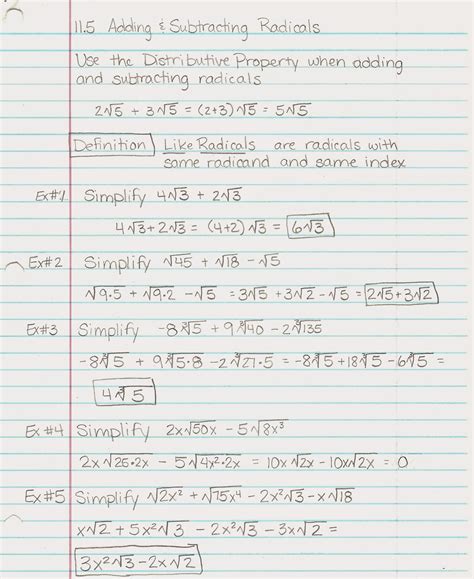 11.5 Adding & Subtracting Radicals
Use the Distributive Property when adding
and subtracting radicals
2√5 + 3√5 = (2+3)√5 = 5√5
Definition Like Radicals are radicals with
same radicand and same index
Ex#1 Simplify 4√3 + 2√3
4√3+2√3 = (4+2)√3 = 6√3
Ex#2 Simplify √45 + √18 - √5
√9·5 + √9·2 - √5 = 3√5 + 3√2 - √5 = 2√5+3√2
Ex#3 Simplify -8∛5 + 9∛40 - 2∛135
-8∛5 + 9∛5·8 - 2∛27·5 = -8∛5+18∛5-6∛5 =
4∛5
Ex #4 Simplify 2x√50x - 5√8x³
2x√25·2x - 5√4x²·2x = 10x√2x - 10x√2x = 0
Ex#5 Simplify √2x² + √75x⁴ - 2x²√3 - x√18
x√2 + 5x²√3 - 2x²√3 - 3x√2 =
3x²√3-2x√2